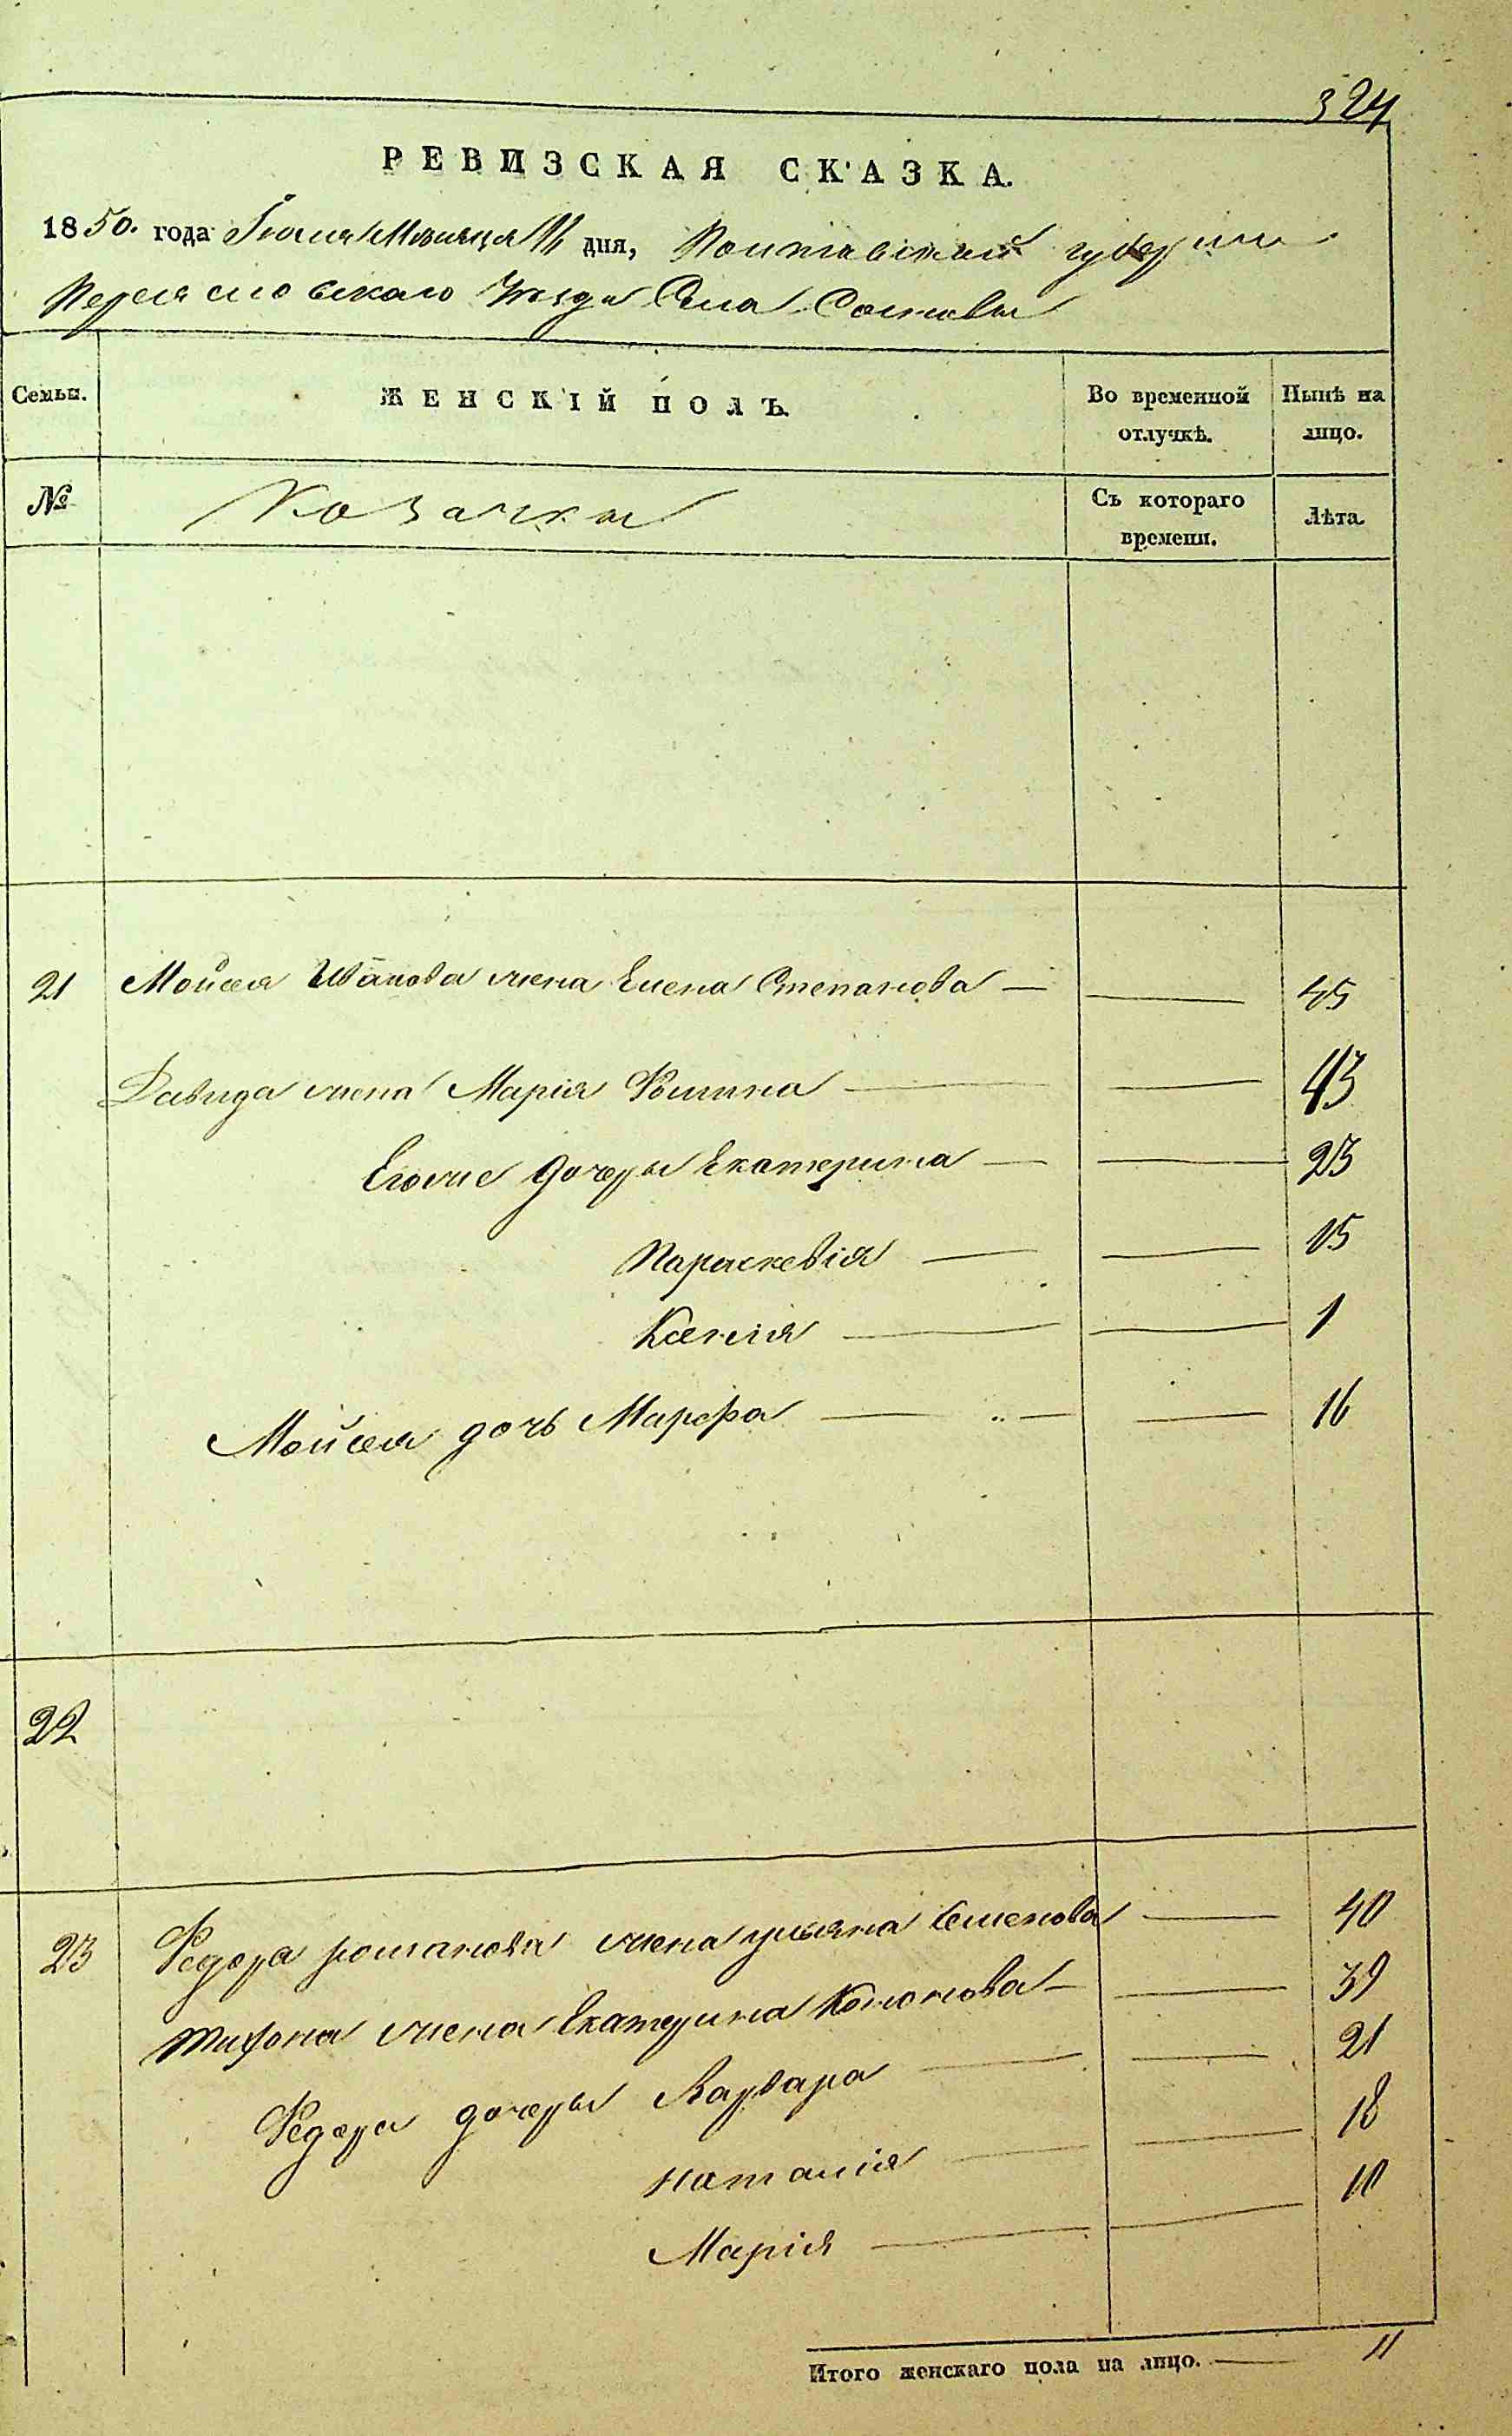 324
РЕВИЗСКАЯ СКАЗКА.
1850. года Іюля Мѣсяца 11 дня, Полтавской губерніи
Переяславскаго Уѣзда Села Сосновы
Семьи. ЖЕНСКІЙ ПОЛЪ. Во временной отлучкѣ. Нынѣ на лицо.
№ Козачки Съ котораго времени. Лѣта.
21 Мойсея Иванова жена Елена Степанова — — 45
Давида жена Марія Фомина — — 43
Егоже дочеры Екатерина — — 23
Параскевія — — 15
Ксенія — — 1
Мойсея дочь Марфа — — 16
22
23 Федора романова жена ульяна Семенова — 40
жена Екатерина Кононова — — 39
Федора дочеры Варвара — — 21
наталія — — 18
Марія — — 10
Итого женскаго пола на лицо. — 11